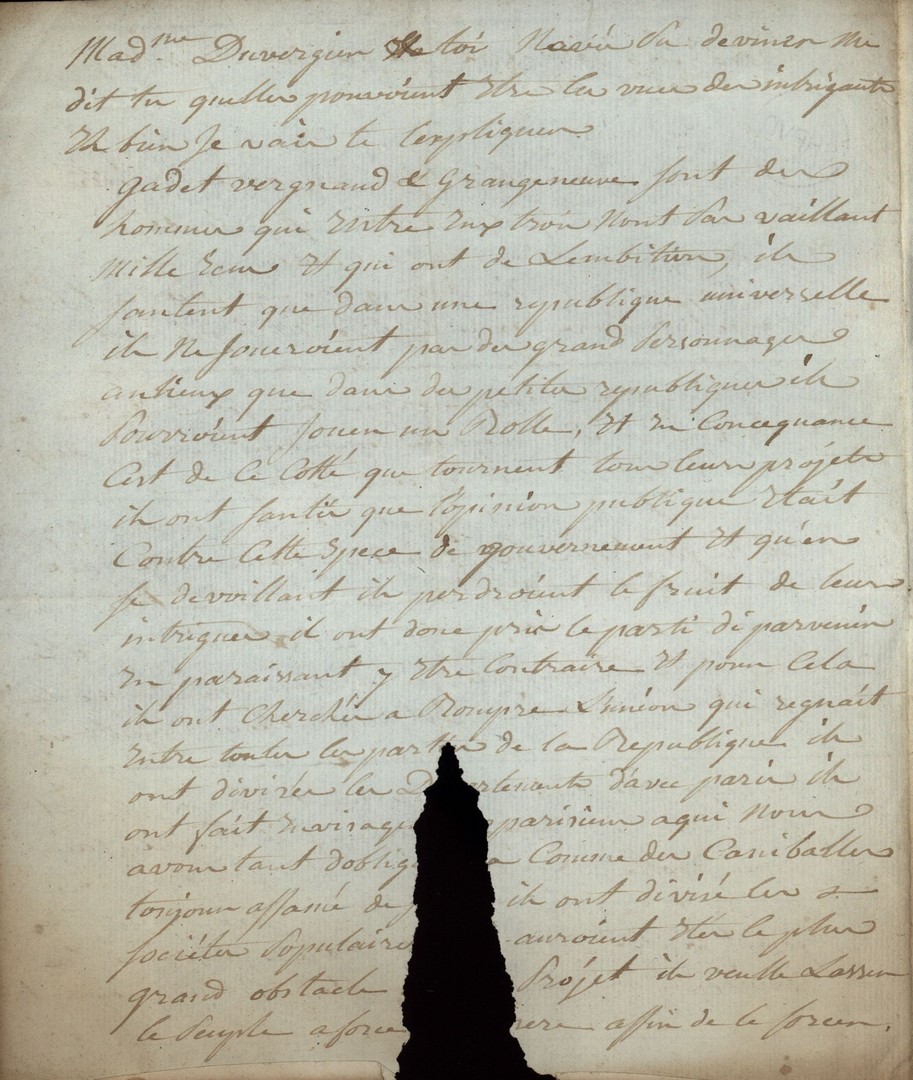 Mad.me Duvergier & toi N'avés Pu deviner me
dit tu quelles pouvoient Etre les vues des intrigants
Et bien Je vais te l'expliquer
gadet vergneaud & Grangeneuve sont des
hommes qui Entre Eux trois N'ont Pas vaillant
Mille Ecus Et qui ont de L'embition, ils
santent que dans une republique universelle
ils Ne Joueroient pas des grand Personnages
antieux que dans des petites republiques ils
Pourroient Jouer un Rolle, Et En Concequance
C'est de Ce Cotté que tournent tous leurs projets
ils ont santis que l'opinion publique Etait
Contre Cette Espece de gouvernement Et qu'en
se devoillant ils perdroient le fruit de leurs
intrigues il ont donc pris le parti di parvenir
En paraissant y Etre Contraire Et pour Cela
ils ont Cherchés a Rompre L'unéon qui regnait
Entre toutes les parties de la Republique ils
ont divisés les D rtements d'avec paris ils
ont fait Envisage parisiens a qui Nous
avons tant d'oblig Comme des Canibàlles
toujours affamé de ils ont divisé les
sociétes Populaire auroient Etés le plus
grand obstacle Projet ils veulle Lasser
le Peuple a force affin de le forcer.